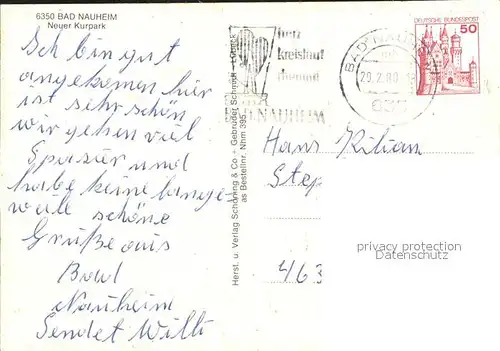 6350 BAD NAUHEIM
Neuer Kurpark
Ich bin gut
angekomen hier
ist sehr schön
wir gehen viel
Spasier und
habe keine lange
weile schöne
Grüße aus
Bad
Nauheim
Sendet Willi
Herst. u. Verlag Schöning & Co + Gebrüder Schmidt - Lübeck
as Bestellnr. Nhm 395
herz
kreislauf
rheuma
BAD NAUHEIM
BAD NAUHEIM
635
DEUTSCHE BUNDESPOST
50
Hans Kilian
Step
463
privacy protection
Datenschutz